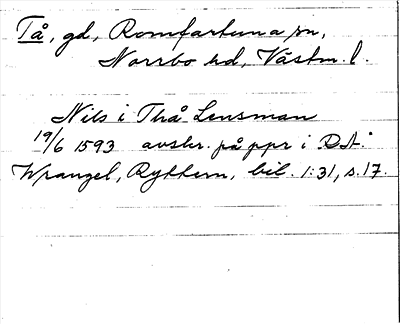 Tå, gd, Romfartuna sn,
Norrbo hd, Västm. l.
Nils i Thå Lensman
19/6 1593 avskr. på ppr i RA:
Wrangel, Ryttern, bil. 1:31, s. 17.